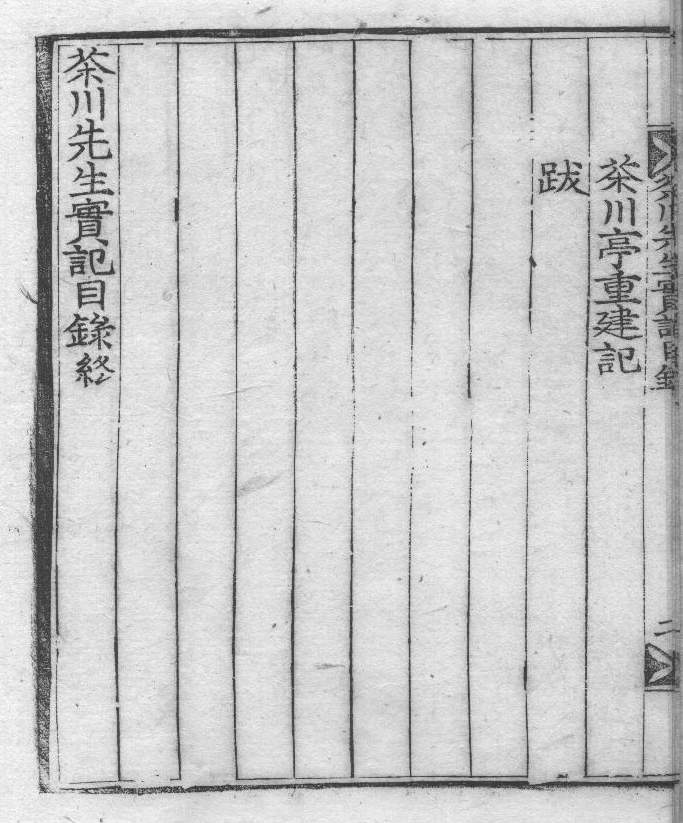 茶川先生實記目錄
二
茶川亭重建記
跋
茶川先生實記目錄終